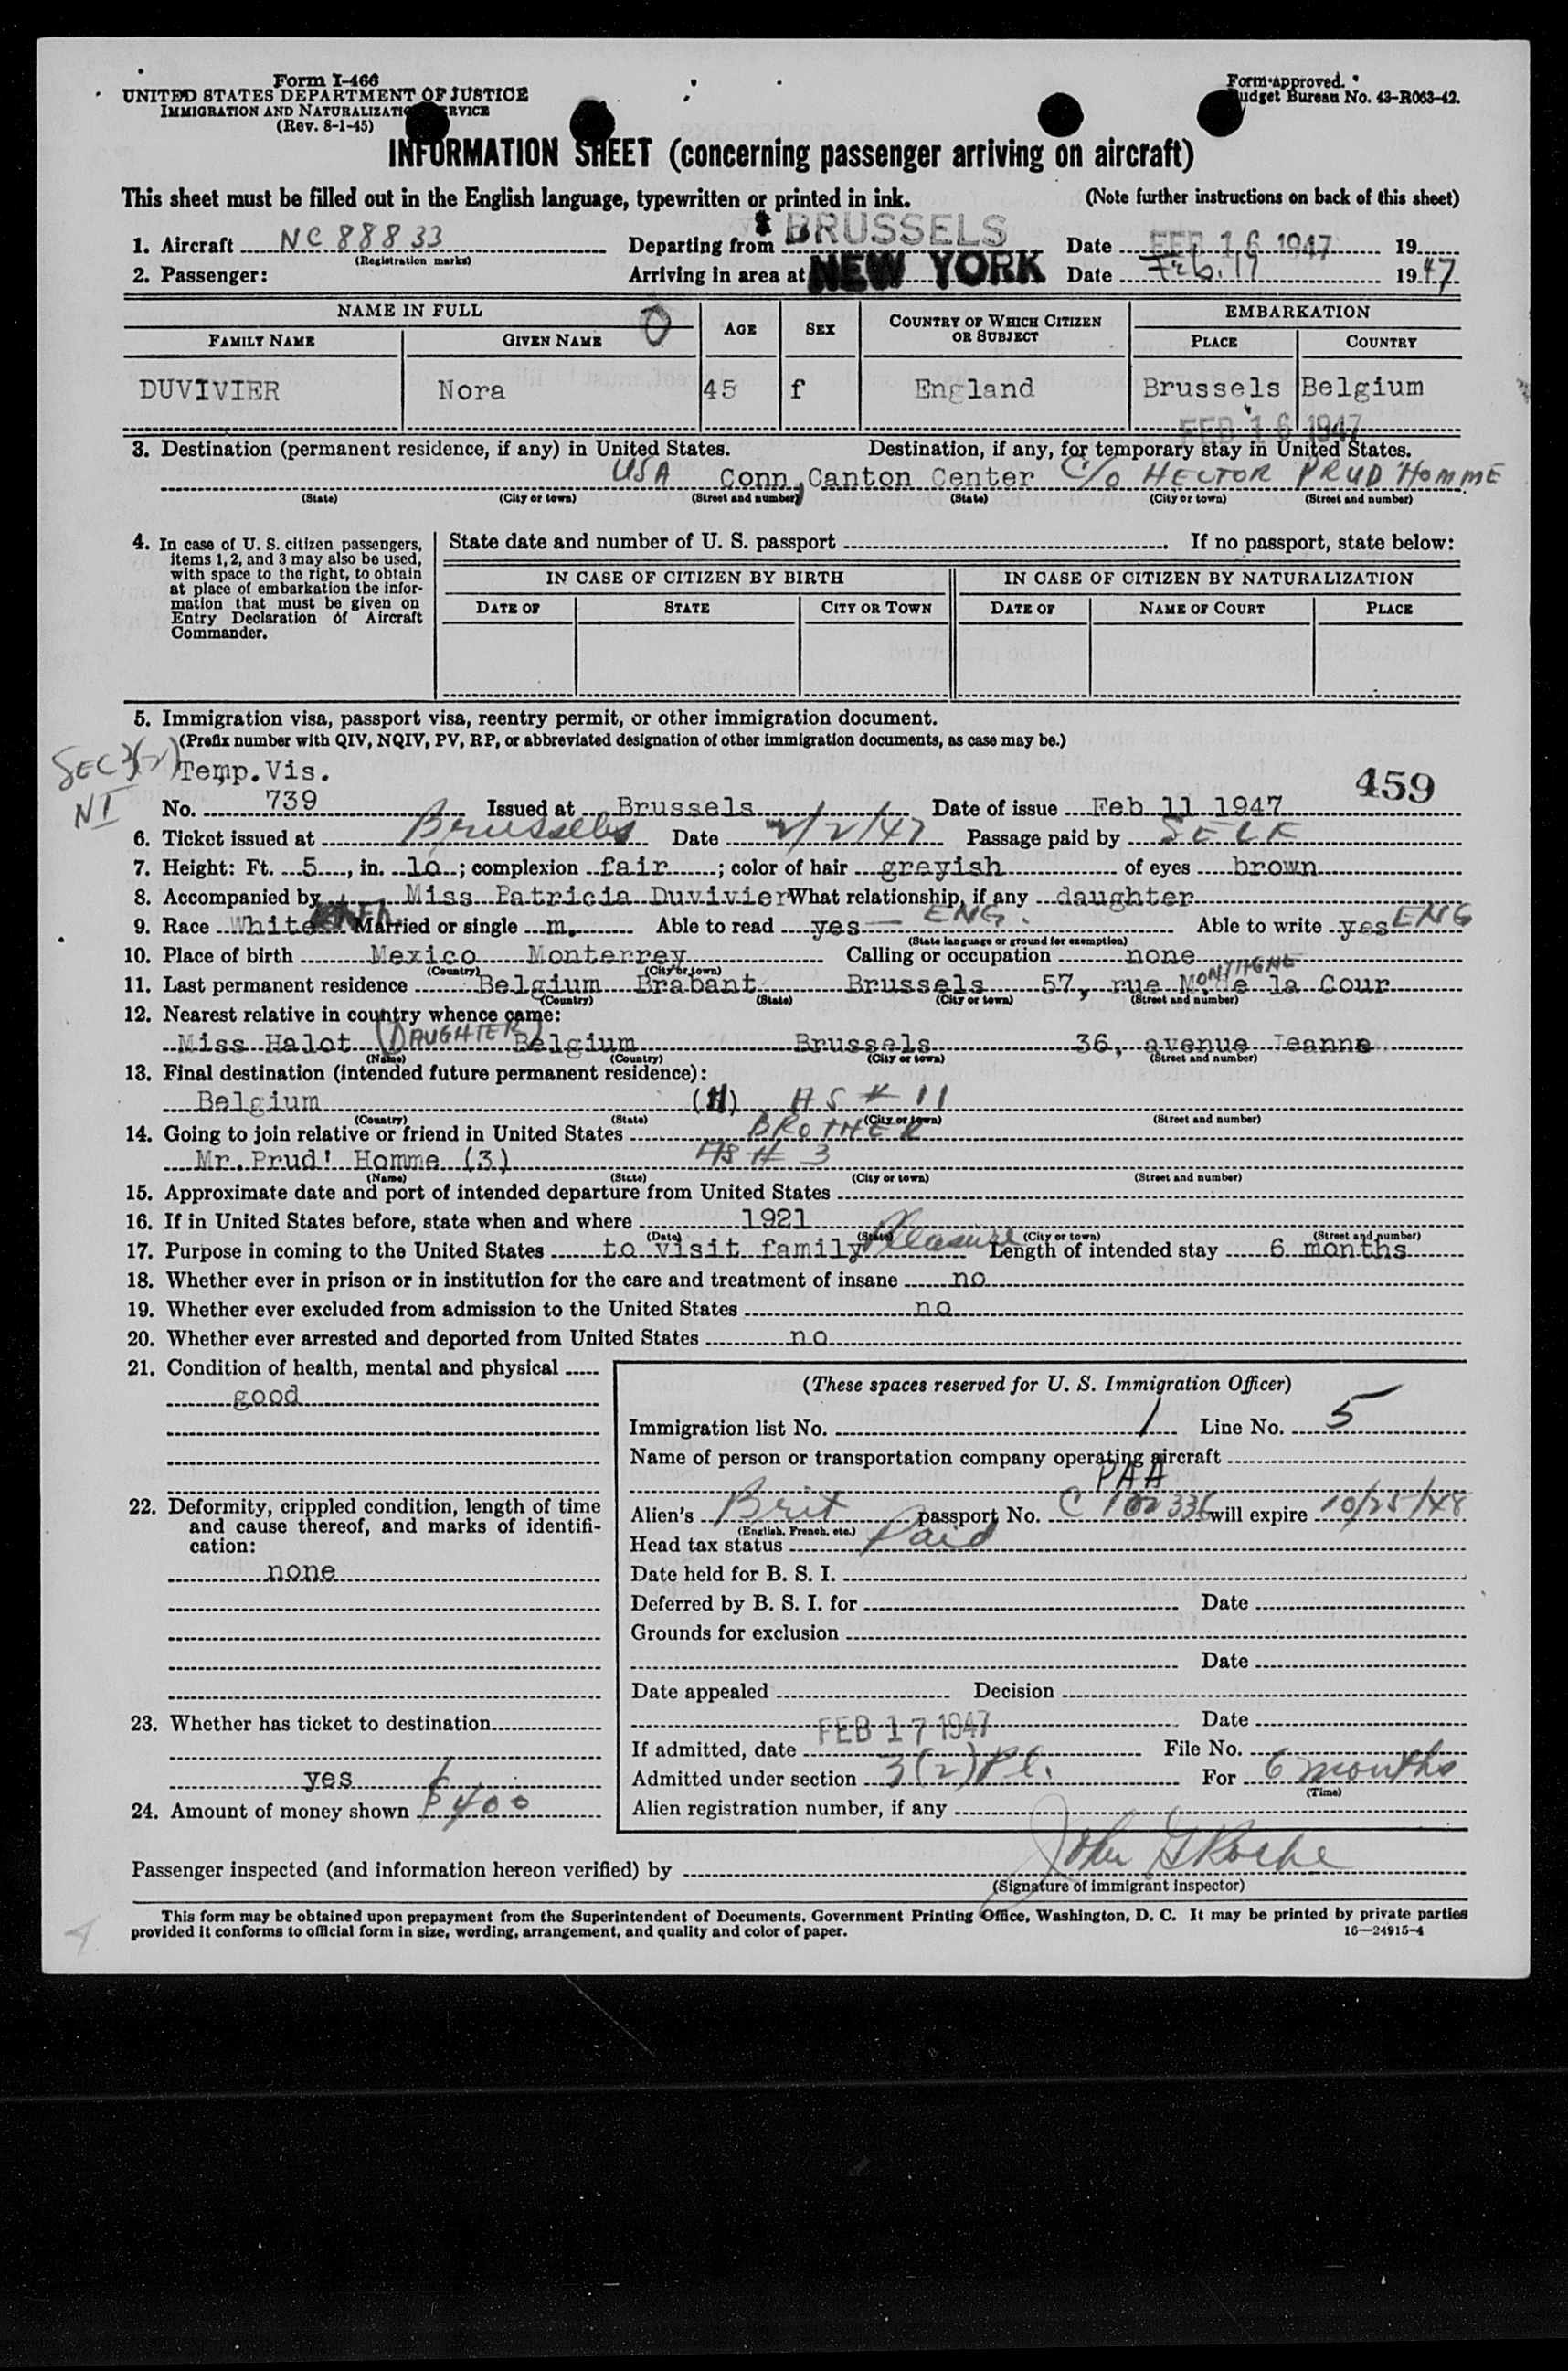 Form I-466
UNITED STATES DEPARTMENT OF JUSTICE
IMMIGRATION AND NATURALIZATION SERVICE
(Rev. 8-1-45)
Form approved.
Budget Bureau No. 43-R063-42.
INFORMATION SHEET (concerning passenger arriving on aircraft)
This sheet must be filled out in the English language, typewritten or printed in ink. (Note further instructions on back of this sheet)
1. Aircraft NC 88833 Departing from BRUSSELS Date FEB 16 1947 19
(Registration marks)
2. Passenger: Arriving in area at NEW YORK Date Feb. 17 1947
NAME IN FULL O AGE SEX COUNTRY OF WHICH CITIZEN OR SUBJECT EMBARKATION
FAMILY NAME GIVEN NAME PLACE COUNTRY
DUVIVIER Nora 45 f England Brussels Belgium
FEB 16 1947
3. Destination (permanent residence, if any) in United States. Destination, if any, for temporary stay in United States.
USA Conn, Canton Center C/O HECTOR PRUD'HOMME
(State) (City or town) (Street and number) (State) (City or town) (Street and number)
4. In case of U. S. citizen passengers, items 1, 2, and 3 may also be used, with space to the right, to obtain at place of embarkation the information that must be given on Entry Declaration of Aircraft Commander.
State date and number of U. S. passport If no passport, state below:
IN CASE OF CITIZEN BY BIRTH IN CASE OF CITIZEN BY NATURALIZATION
DATE OF STATE CITY OR TOWN DATE OF NAME OF COURT PLACE
5. Immigration visa, passport visa, reentry permit, or other immigration document.
(Prefix number with QIV, NQIV, PV, RP, or abbreviated designation of other immigration documents, as case may be.)
SEC 3(2)
NI
Temp.Vis.
459
No. 739 Issued at Brussels Date of issue Feb 11 1947
6. Ticket issued at Brussels Date 2/2/47 Passage paid by SELF
7. Height: Ft. 5, in. 10; complexion fair; color of hair greyish of eyes brown
8. Accompanied by Miss Patricia Duvivier What relationship, if any daughter
9. Race White Married or single m. Able to read yes — ENG. Able to write yes ENG
(State language or ground for exemption)
10. Place of birth Mexico Monterrey Calling or occupation none
(Country) (City or town)
11. Last permanent residence Belgium Brabant Brussels 57, rue MONTAGNE de la Cour
(Country) (State) (City or town) (Street and number)
12. Nearest relative in country whence came:
Miss Halot (DAUGHTER) Belgium Brussels 36, avenue Jeanne
(Name) (Country) (City or town) (Street and number)
13. Final destination (intended future permanent residence):
Belgium (11) AS # 11
(Country) (State) (City or town) (Street and number)
14. Going to join relative or friend in United States BROTHER
Mr. Prud' Homme (3) AS # 3
(Name) (State) (City or town) (Street and number)
15. Approximate date and port of intended departure from United States
16. If in United States before, state when and where 1921
(Date) (State) (City or town) (Street and number)
17. Purpose in coming to the United States to visit family Pleasure Length of intended stay 6 months
18. Whether ever in prison or in institution for the care and treatment of insane no
19. Whether ever excluded from admission to the United States no
20. Whether ever arrested and deported from United States no
21. Condition of health, mental and physical
good
22. Deformity, crippled condition, length of time and cause thereof, and marks of identification:
none
23. Whether has ticket to destination
yes
24. Amount of money shown $400
(These spaces reserved for U. S. Immigration Officer)
Immigration list No. 1 Line No. 5
Name of person or transportation company operating aircraft
PAA
Alien's Brit passport No. C 102336 will expire 10/25/48
(English, French, etc.)
Head tax status Paid
Date held for B. S. I.
Deferred by B. S. I. for Date
Grounds for exclusion
Date
Date appealed Decision
Date
If admitted, date FEB 17 1947 File No.
Admitted under section 3(2) Pl. For 6 months
(Time)
Alien registration number, if any
Passenger inspected (and information hereon verified) by John G Roche
(Signature of immigrant inspector)
This form may be obtained upon prepayment from the Superintendent of Documents, Government Printing Office, Washington, D. C. It may be printed by private parties
provided it conforms to official form in size, wording, arrangement, and quality and color of paper. 16—24915-4